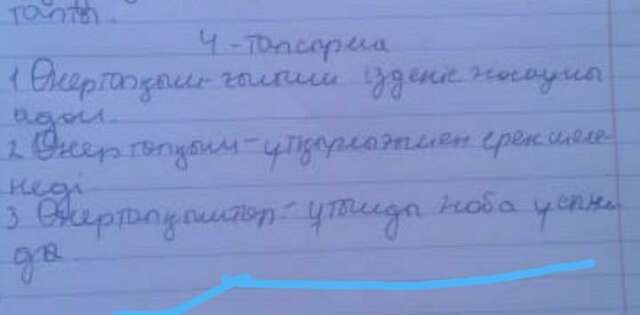 тапты.
4-тапсырма
1 Өнертапқыш-ғылыми ізденіс жасаушы
адам.
2 Өнертапқыш-ұшқырлығымен ерекшеле-
неді
3 Өнертапқыштар-ұтымды жоба ұсына-
ды